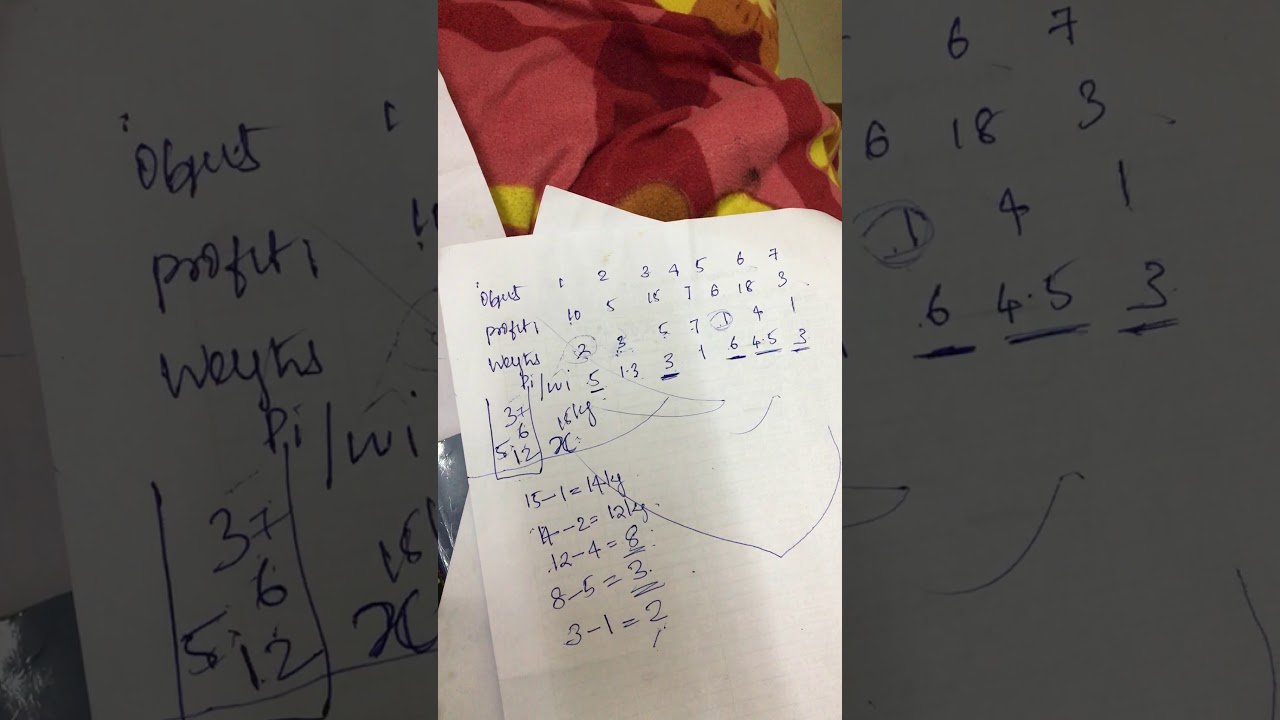 Object 1 2 3 4 5 6 7
profits 10 5 15 7 6 18 3
Weights 2 3 5 7 1 4 1
Pi/wi 5 1.3 3 1 6 4.5 3
37 15kg
6
5 12
15-1=14kg
14-2=12kg
12-4=8
8-5=3
3-1=2